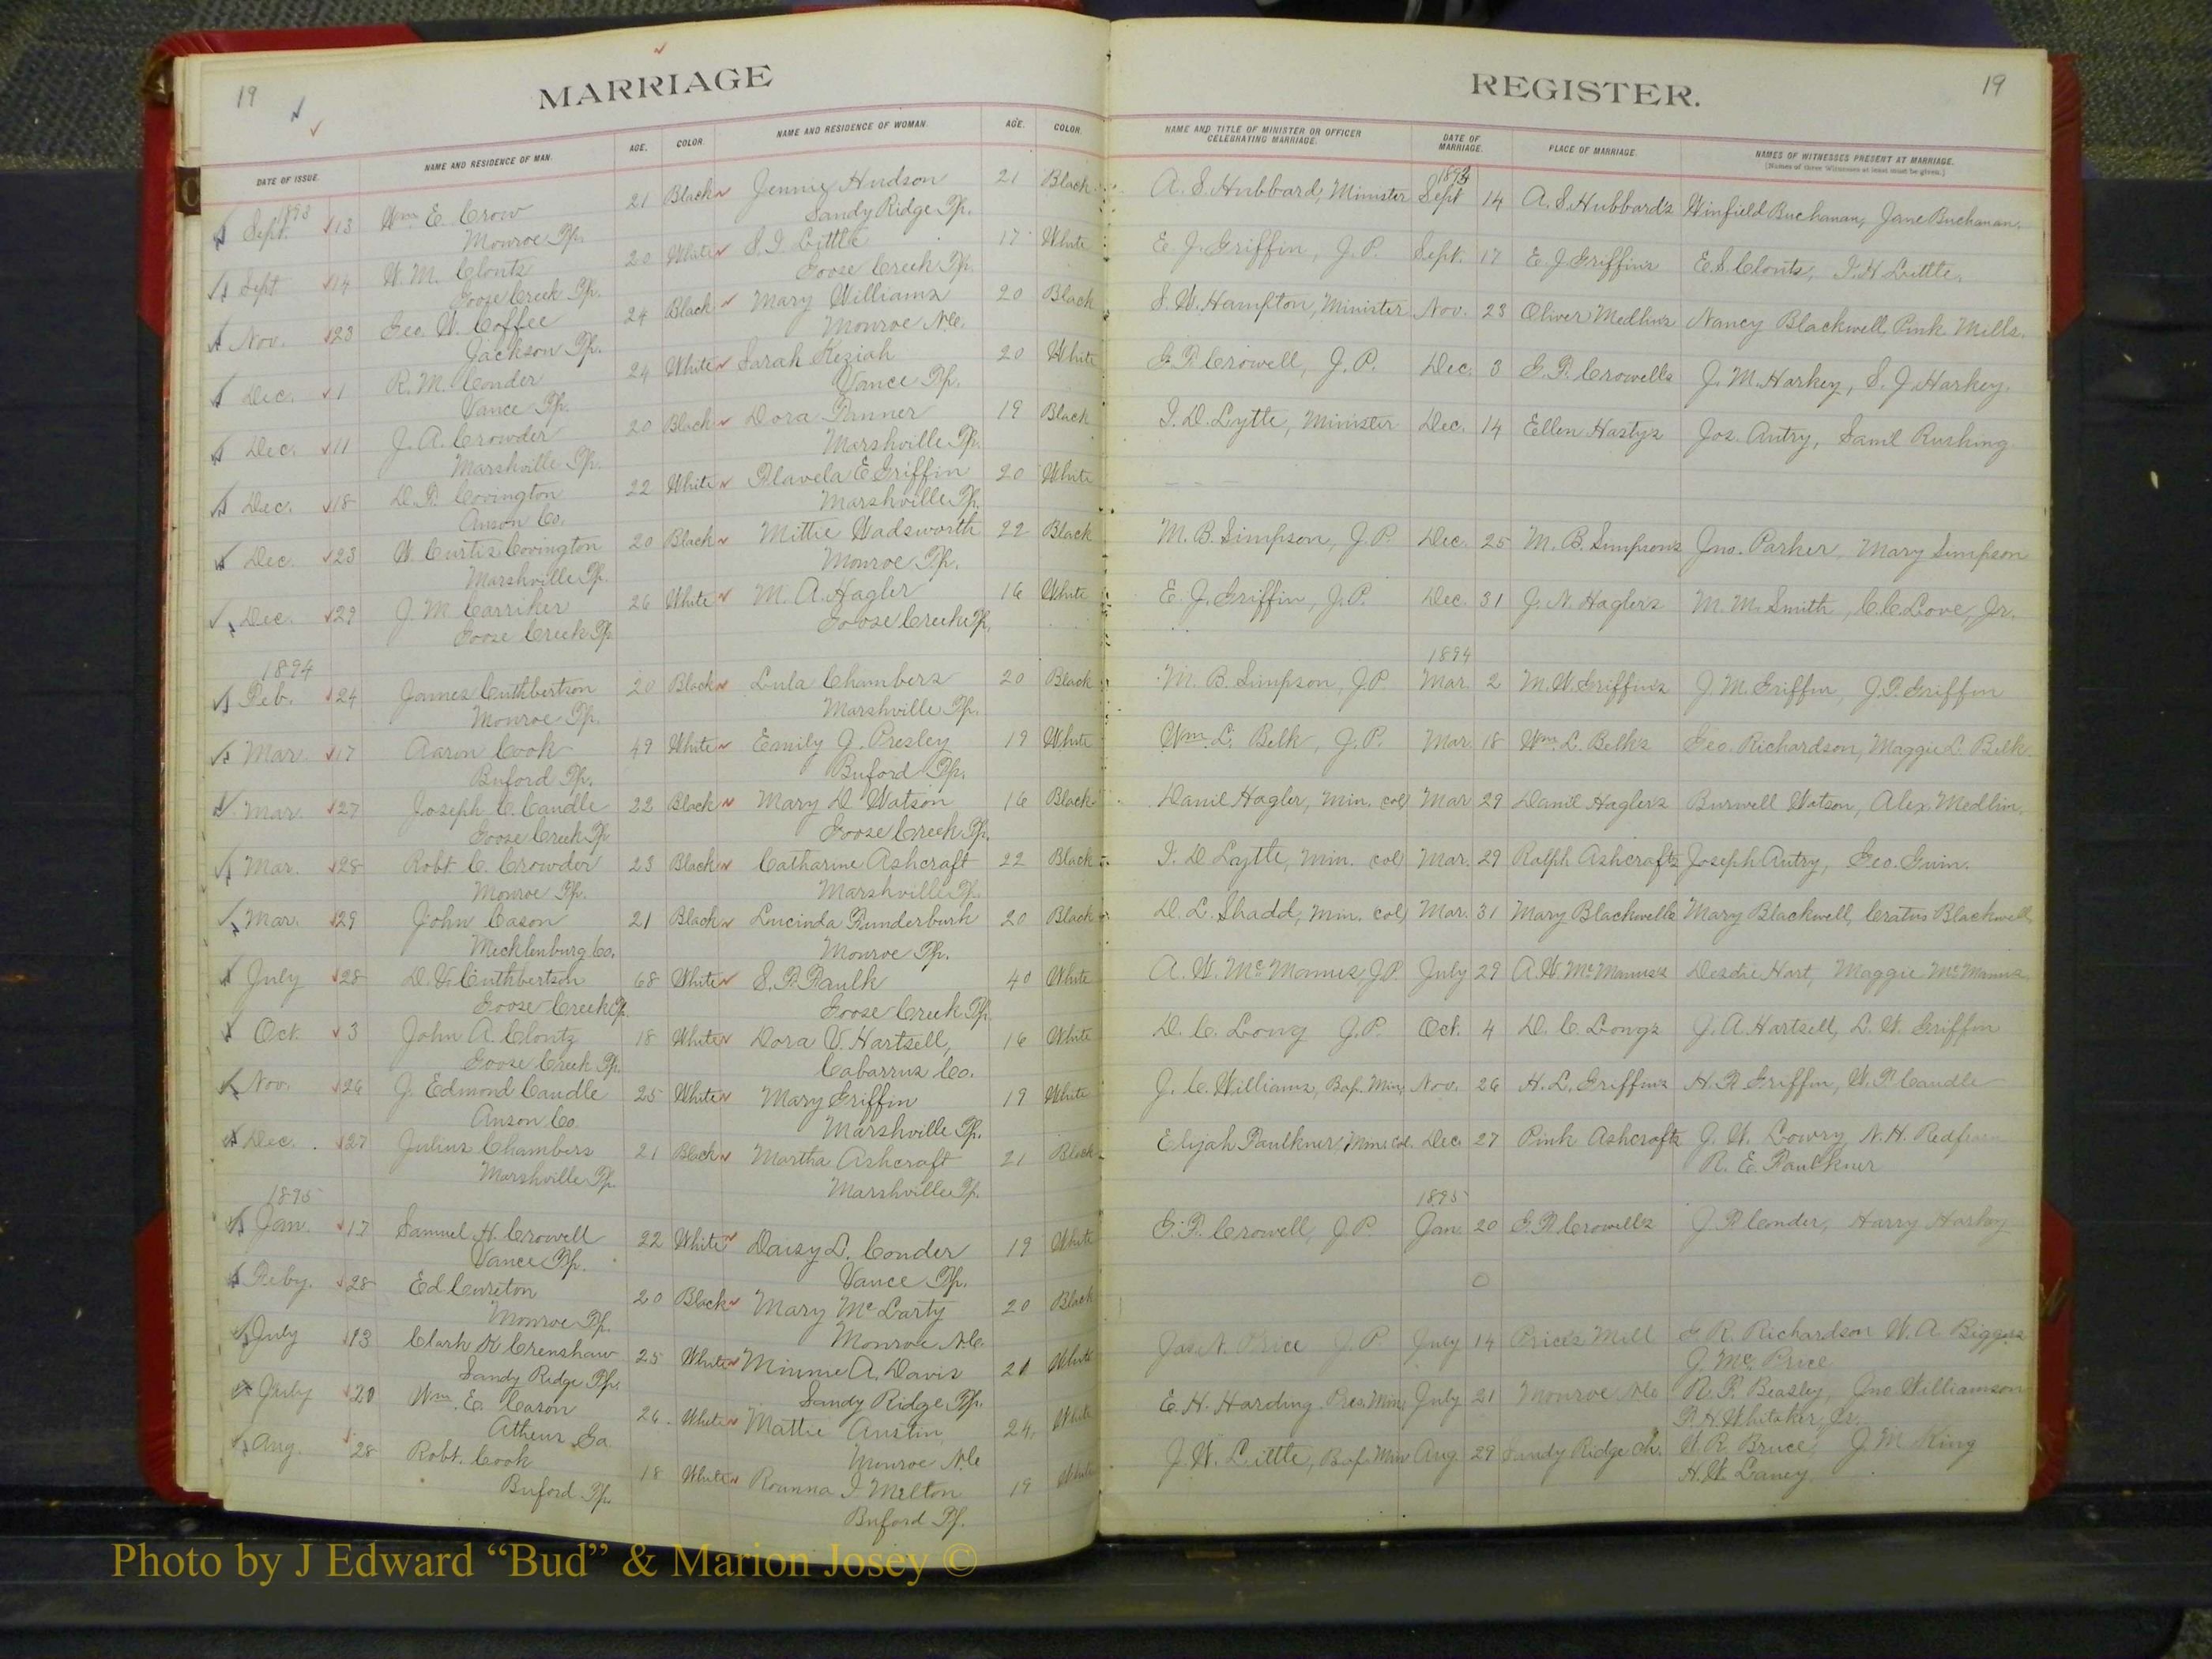 19
MARRIAGE
DATE OF ISSUE. NAME AND RESIDENCE OF MAN. AGE. COLOR. NAME AND RESIDENCE OF WOMAN. AGE. COLOR.
1893
Sept. 13 Wm E. Crow 21 Black Jennie Hudson 21 Black
Monroe Tp. Sandy Ridge Tp.
Sept 14 W. M. Clontz 20 White S. I. Little 17 White
Goose Creek Tp. Goose Creek Tp.
Nov. 23 Geo. W. Coffee 24 Black Mary Williams 20 Black
Jackson Tp. Monroe N.C.
Dec. 1 R. M. Conder 24 White Sarah Keziah 20 White
Vance Tp. Vance Tp.
Dec. 11 J. A. Crowder 20 Black Dora 19 Black
Marshville Tp. Marshville Tp.
Dec. 18 D. F. Covington 22 White Flavela E Griffin 20 White
Anson Co. Marshville Tp.
Dec. 23 W. Curtis Covington 20 Black Mittie Wadsworth 22 Black
Marshville Tp. Monroe Tp.
Dec. 29 J. M. Carriker 26 White M. A. Hagler 16 White
Goose Creek Tp. Goose Creek Tp.
1894
Feb. 24 James Cuthbertson 20 Black Lula Chambers 20 Black
Monroe Tp. Marshville Tp.
Mar. 17 Aaron Cook 49 White Emily J. Presley 19 White
Buford Tp. Buford Tp.
Mar. 27 Joseph C. Caudle 22 Black Mary D Watson 16 Black
Goose Creek Tp. Goose Creek Tp.
Mar. 28 Robt C. Crowder 23 Black Catharine Ashcraft 22 Black
Monroe Tp. Marshville Tp.
Mar. 29 John Cason 21 Black Lucinda Funderburk 20 Black
Mecklenburg Co. Monroe Tp.
July 28 Cuthbertson 68 White S. F. Faulk 40 White
Goose Creek Tp. Goose Creek Tp.
Oct. 3 John A. Clontz 18 White Dora V. Hartsell, 16 White
Goose Creek Tp. Cabarrus Co.
Nov. 26 J. Edmond Caudle 25 White Mary Griffin 19 White
Anson Co. Marshville Tp.
Dec. 27 Julius Chambers 21 Black Martha Ashcraft 21 Black
Marshville Tp. Marshville Tp.
1895
Jan. 17 Samuel H. Crowell 22 White Daisy L. Conder 19 White
Vance Tp. Vance Tp.
Feby. 28 Ed Cureton 20 Black Mary McLarty 20 Black
Monroe Tp. Monroe N.C.
July 13 Clark K Crenshaw 25 White Minnie A. Davis 21 White
Sandy Ridge Tp. Sandy Ridge Tp.
July 20 Wm. E. Cason 26 White Mattie Austin 24 White
Athens Ga. Monroe N.C.
Aug. 28 Robt. Cook 18 White Rounna I Melton 19 White
Buford Tp. Buford Tp.
REGISTER.
19
NAME AND TITLE OF MINISTER OR OFFICER CELEBRATING MARRIAGE. DATE OF MARRIAGE. PLACE OF MARRIAGE. NAMES OF WITNESSES PRESENT AT MARRIAGE.
[Names of three Witnesses at least must be given.]
1893
A. S. Hubbard, Minister Sept 14 A. S. Hubbard's Winfield Buchanan, Jane Buchanan.
E. J. Griffin, J. P. Sept. 17 E. J Griffin's E. S. Clontz, I. H Little.
S. W. Hampton, Minister Nov. 23 Oliver Medlin's Nancy Blackwell, Pink Mills.
G. F. Crowell, J. P. Dec. 3 G. F. Crowells J. M. Harkey, S. J Harkey.
I. D. Lytle, Minister Dec. 14 Ellen Hasty's Jos. Autry, Saml Rushing.
M. B. Simpson, J. P. Dec. 25 M. B. Simpson's Jno. Parker, Mary Simpson
E. J. Griffin, J. P. Dec. 31 J. N. Hagler's M. M. Smith, C. C. Love, Jr.
1894
M. B. Simpson, J P Mar 2 M. W. Griffin's J. M. Griffin, J. F. Griffin
Wm L. Belk, J. P. Mar. 18 Wm L. Belk's Geo. Richardson, Maggie L. Belk.
Daniel Hagler, Min. col Mar 29 Daniel Hagler's Burwell Watson, Alex. Medlin.
I. D Lytle, Min. col Mar. 29 Ralph Ashcraft's Joseph Autry, Geo. Guin.
D. L. Shadd, Min. col Mar. 31 Mary Blackwells Mary Blackwell, Cratus Blackwell
A. W. McManus J. P. July 29 A. W McManus's Desdie Hart, Maggie McManus
D. C. Long J. P. Oct. 4 D. C Longs J. A. Hartsell, L. W. Griffin
J. C. Williams, Bap. Min. Nov. 26 H. L. Griffin's H. Griffin, W. F. Caudle
Elijah Faulkner, Min. Col. Dec. 27 Pink Ashcrafts J. W. Lowry, N. H. Redfearn
R. E. Faulkner
1895
G. F. Crowell, J P. Jan 20 G. F. Crowell's J. F. Conder, Harry Harkey
Jas N. Price J. P. July 14 Price's Mill G. R. Richardson W. A. Biggers
J. Mc. Price
E. H. Harding Pres. Min. July 21 Monroe N.C. R. F. Beasley, Jno Williamson
Whitaker, Jr.
J. W. Little, Bap. Min Aug 29 Sandy Ridge ch. W. R. Bruce, J. M King
H. W. Laney.
Photo by J Edward “Bud” & Marion Josey ©